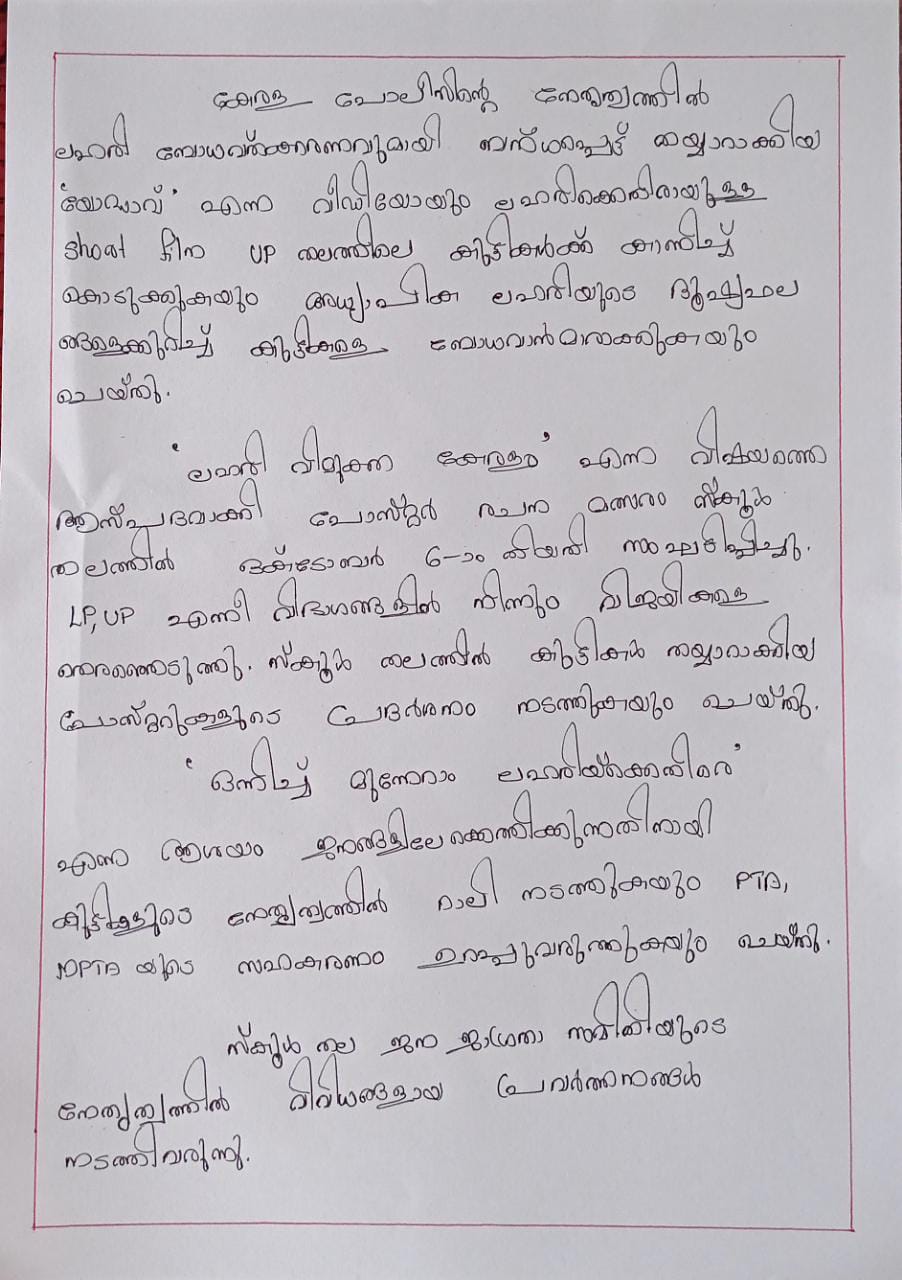 കേരള പോലീസിന്റെ നേതൃത്വത്തിൽ
ലഹരി ബോധവത്ക്കരണവുമായി ബന്ധപ്പെട്ട് തയ്യാറാക്കിയ
'യോദ്ധാവ്' എന്ന വീഡിയോയും ലഹരിക്കെതിരായുള്ള
Short film UP തലത്തിലെ കുട്ടികൾക്ക് കാണിച്ച്
കൊടുക്കുകയും അധ്യാപിക ലഹരിയുടെ ദൂഷ്യഫല
ങ്ങളെക്കുറിച്ച് കുട്ടികളെ ബോധവാൻമാരാക്കുകയും
ചെയ്തു.
'ലഹരി വിമുക്ത കേരളം' എന്ന വിഷയത്തെ
ആസ്പദമാക്കി പോസ്റ്റർ രചന മത്സരം സ്കൂൾ
തലത്തിൽ ഒക്ടോബർ 6-ാം തിയതി സംഘടിപ്പിച്ചു.
LP, UP എന്നീ വിഭാഗങ്ങളിൽ നിന്നും വിജയികളെ
തെരഞ്ഞെടുത്തു. സ്കൂൾ തലത്തിൽ കുട്ടികൾ തയ്യാറാക്കിയ
പോസ്റ്ററുകളുടെ പ്രദർശനം നടത്തുകയും ചെയ്തു.
'ഒന്നിച്ച് മുന്നേറാം ലഹരിയ്ക്കെതിരെ'
എന്ന ആശയം ജനങ്ങളിലേക്കെത്തിക്കുന്നതിനായി
കുട്ടികളുടെ നേതൃത്വത്തിൽ റാലി നടത്തുകയും PTA,
MPTA യുടെ സഹകരണം ഉറപ്പുവരുത്തുകയും ചെയ്തു.
സ്കൂൾ തല ജന ജാഗ്രതാ സമിതിയുടെ
നേതൃത്വത്തിൽ വിവിധങ്ങളായ പ്രവർത്തനങ്ങൾ
നടത്തിവരുന്നു.